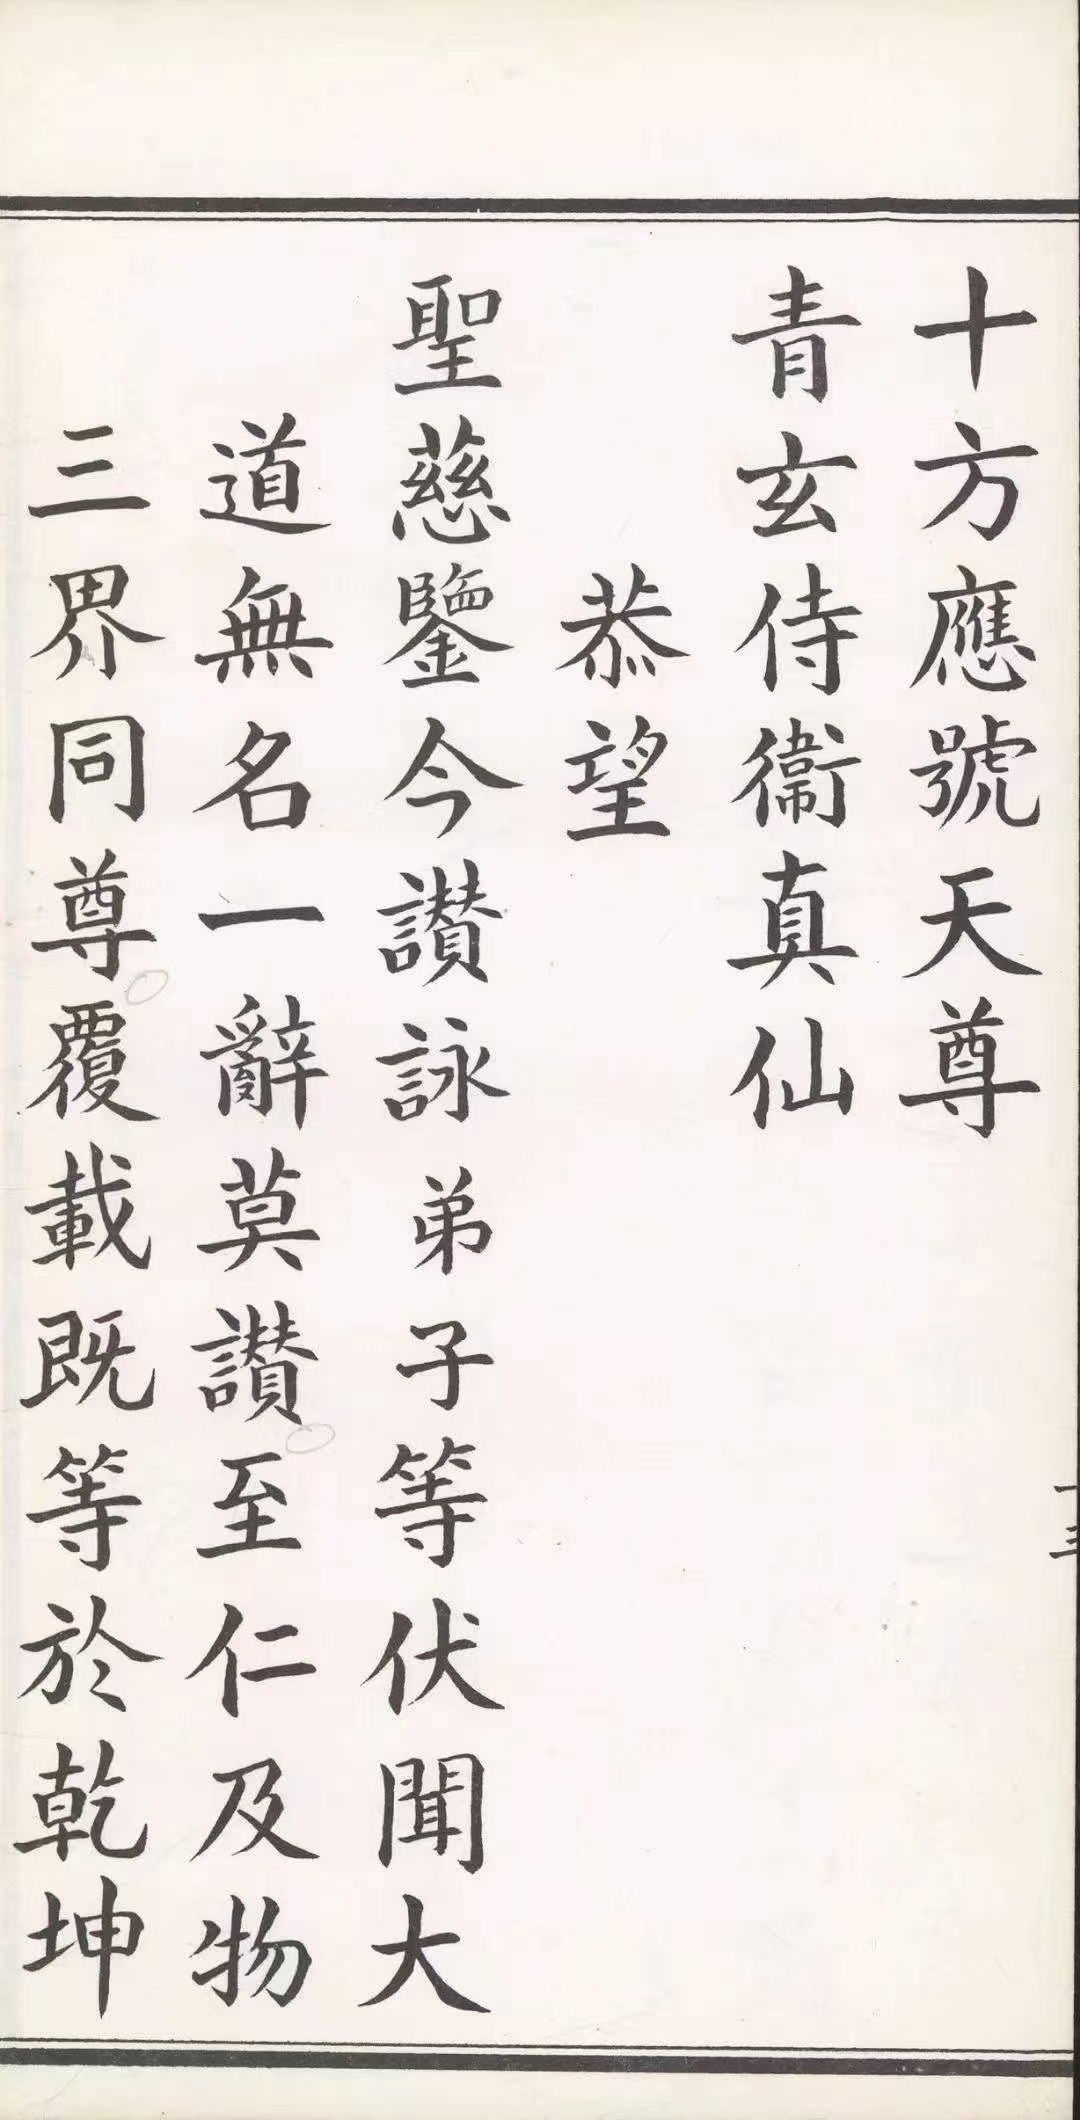 十方應號天尊
青玄侍衞真仙
恭望
聖慈鑒今讃詠弟子等伏聞大
道無名一辭莫讃至仁及物
三界同尊覆載既等於乾坤
十三